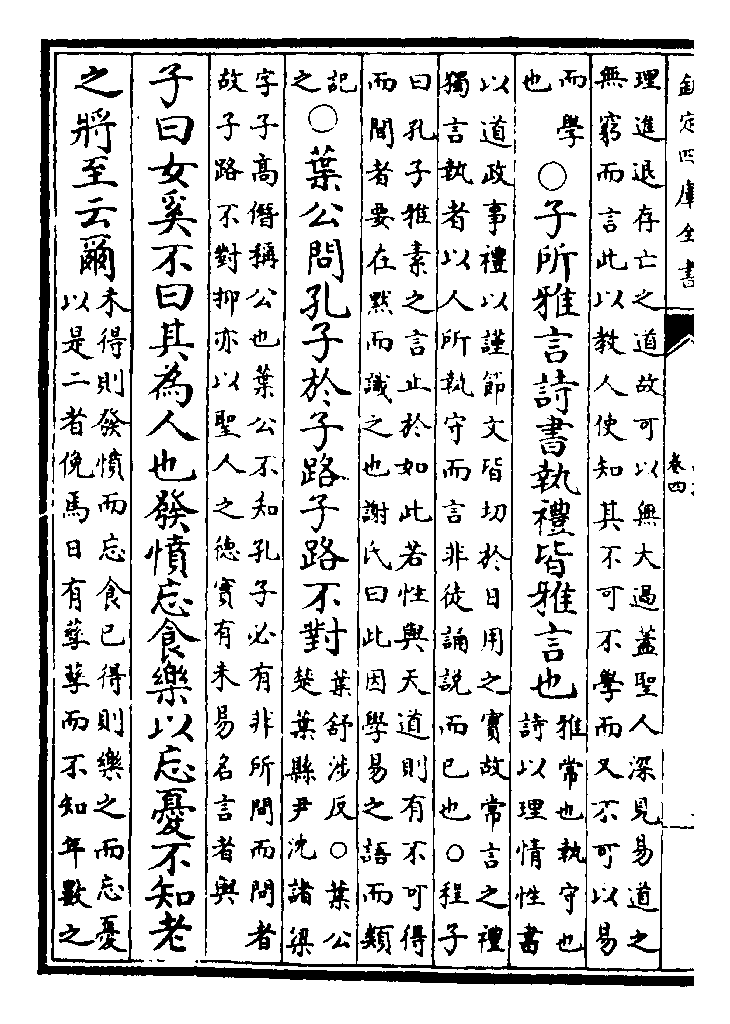 欽定四庫全書
卷四
理進退存亡之道故可以無大過蓋聖人深見易道之
無窮而言此以教人使知其不可不學而又不可以易
而學
也
○子所雅言詩書執禮皆雅言也
雅常也執守也
詩以理情性書
以道政事禮以謹節文皆切於日用之實故常言之禮
獨言執者以人所執守而言非徒誦說而已也○程子
曰孔子雅素之言止於如此若性與天道則有不可得
而聞者要在黙而識之也謝氏曰此因學易之語而類
記
之
○葉公問孔子於子路子路不對
葉舒涉反○葉公
楚葉縣尹沈諸梁
字子高僭稱公也葉公不知孔子必有非所問而問者
故子路不對抑亦以聖人之德實有未易名言者與
子曰女奚不曰其為人也發憤忘食樂以忘憂不知老
之將至云爾
未得則發憤而忘食已得則樂之而忘憂
以是二者俛焉日有孳孳而不知年數之